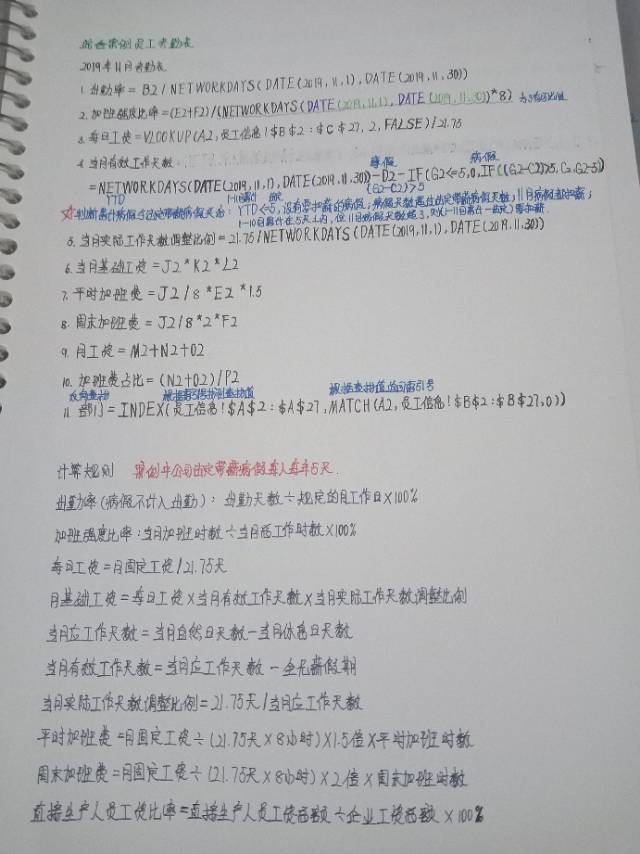 综合案例员工考勤表
2019年11月考勤表
1. 出勤率 = B2 / NETWORKDAYS(DATE(2019,11,1), DATE(2019,11,30))
2. 加班强度比率=(E2+F2)/(NETWORKDAYS(DATE(2019,11,1), DATE(2019,11,30))*8)
3. 每日工资=VLOOKUP(A2,员工信息!$B$2:$C$27, 2, FALSE)/21.75
4. 当月有效工作天数:
事假 病假
=NETWORKDAYS(DATE(2019,11,1), DATE(2019,11,30))-D2-IF(G2<=5,0,IF((G2-C2)>5,C2,G2-5))
YTD 1-10月累计 法定 (G2-C2)>5
☆判断累计病假与法定带薪病假天数: YTD<=5,没有需扣薪的病假;病假天数超过法定带薪病假天数,11月病假都扣薪;
1-10月累计在5天以内,但11月病假天数超了,则(1-11月累计-法定)需扣薪.
5. 当月实际工作天数调整比例=21.75/NETWORKDAYS(DATE(2019,11,1), DATE(2019,11,30))
6. 当月基础工资=J2*K2*L2
7. 平时加班费=J2/8*E2*1.5
8. 周末加班费=J2/8*2*F2
9. 月工资=M2+N2+O2
10. 加班费占比=(N2+O2)/P2
反向查找 根据索引号找到查找值 根据查找值返回索引号
11. 部门=INDEX(员工信息!$A$2:$A$27,MATCH(A2,员工信息!$B$2:$B$27,0))
计算规则 案例中公司法定带薪病假每人每年5天.
出勤率(病假不计入出勤): 出勤天数÷规定的月工作日×100%
加班强度比率:当月加班时数÷当月总工作时数×100%
每日工资=月固定工资/21.75天
月基础工资=每日工资×当月有效工作天数×当月实际工作天数调整比例
当月应工作天数=当月自然日天数-当月休息日天数
当月有效工作天数=当月应工作天数-全无薪假期
当月实际工作天数调整比例=21.75天/当月应工作天数
平时加班费=月固定工资÷(21.75天×8小时)×1.5倍×平时加班时数
周末加班费=月固定工资÷(21.75天×8小时)×2倍×周末加班时数
直接生产人员工资比率=直接生产人员工资总额÷企业工资总额×100%